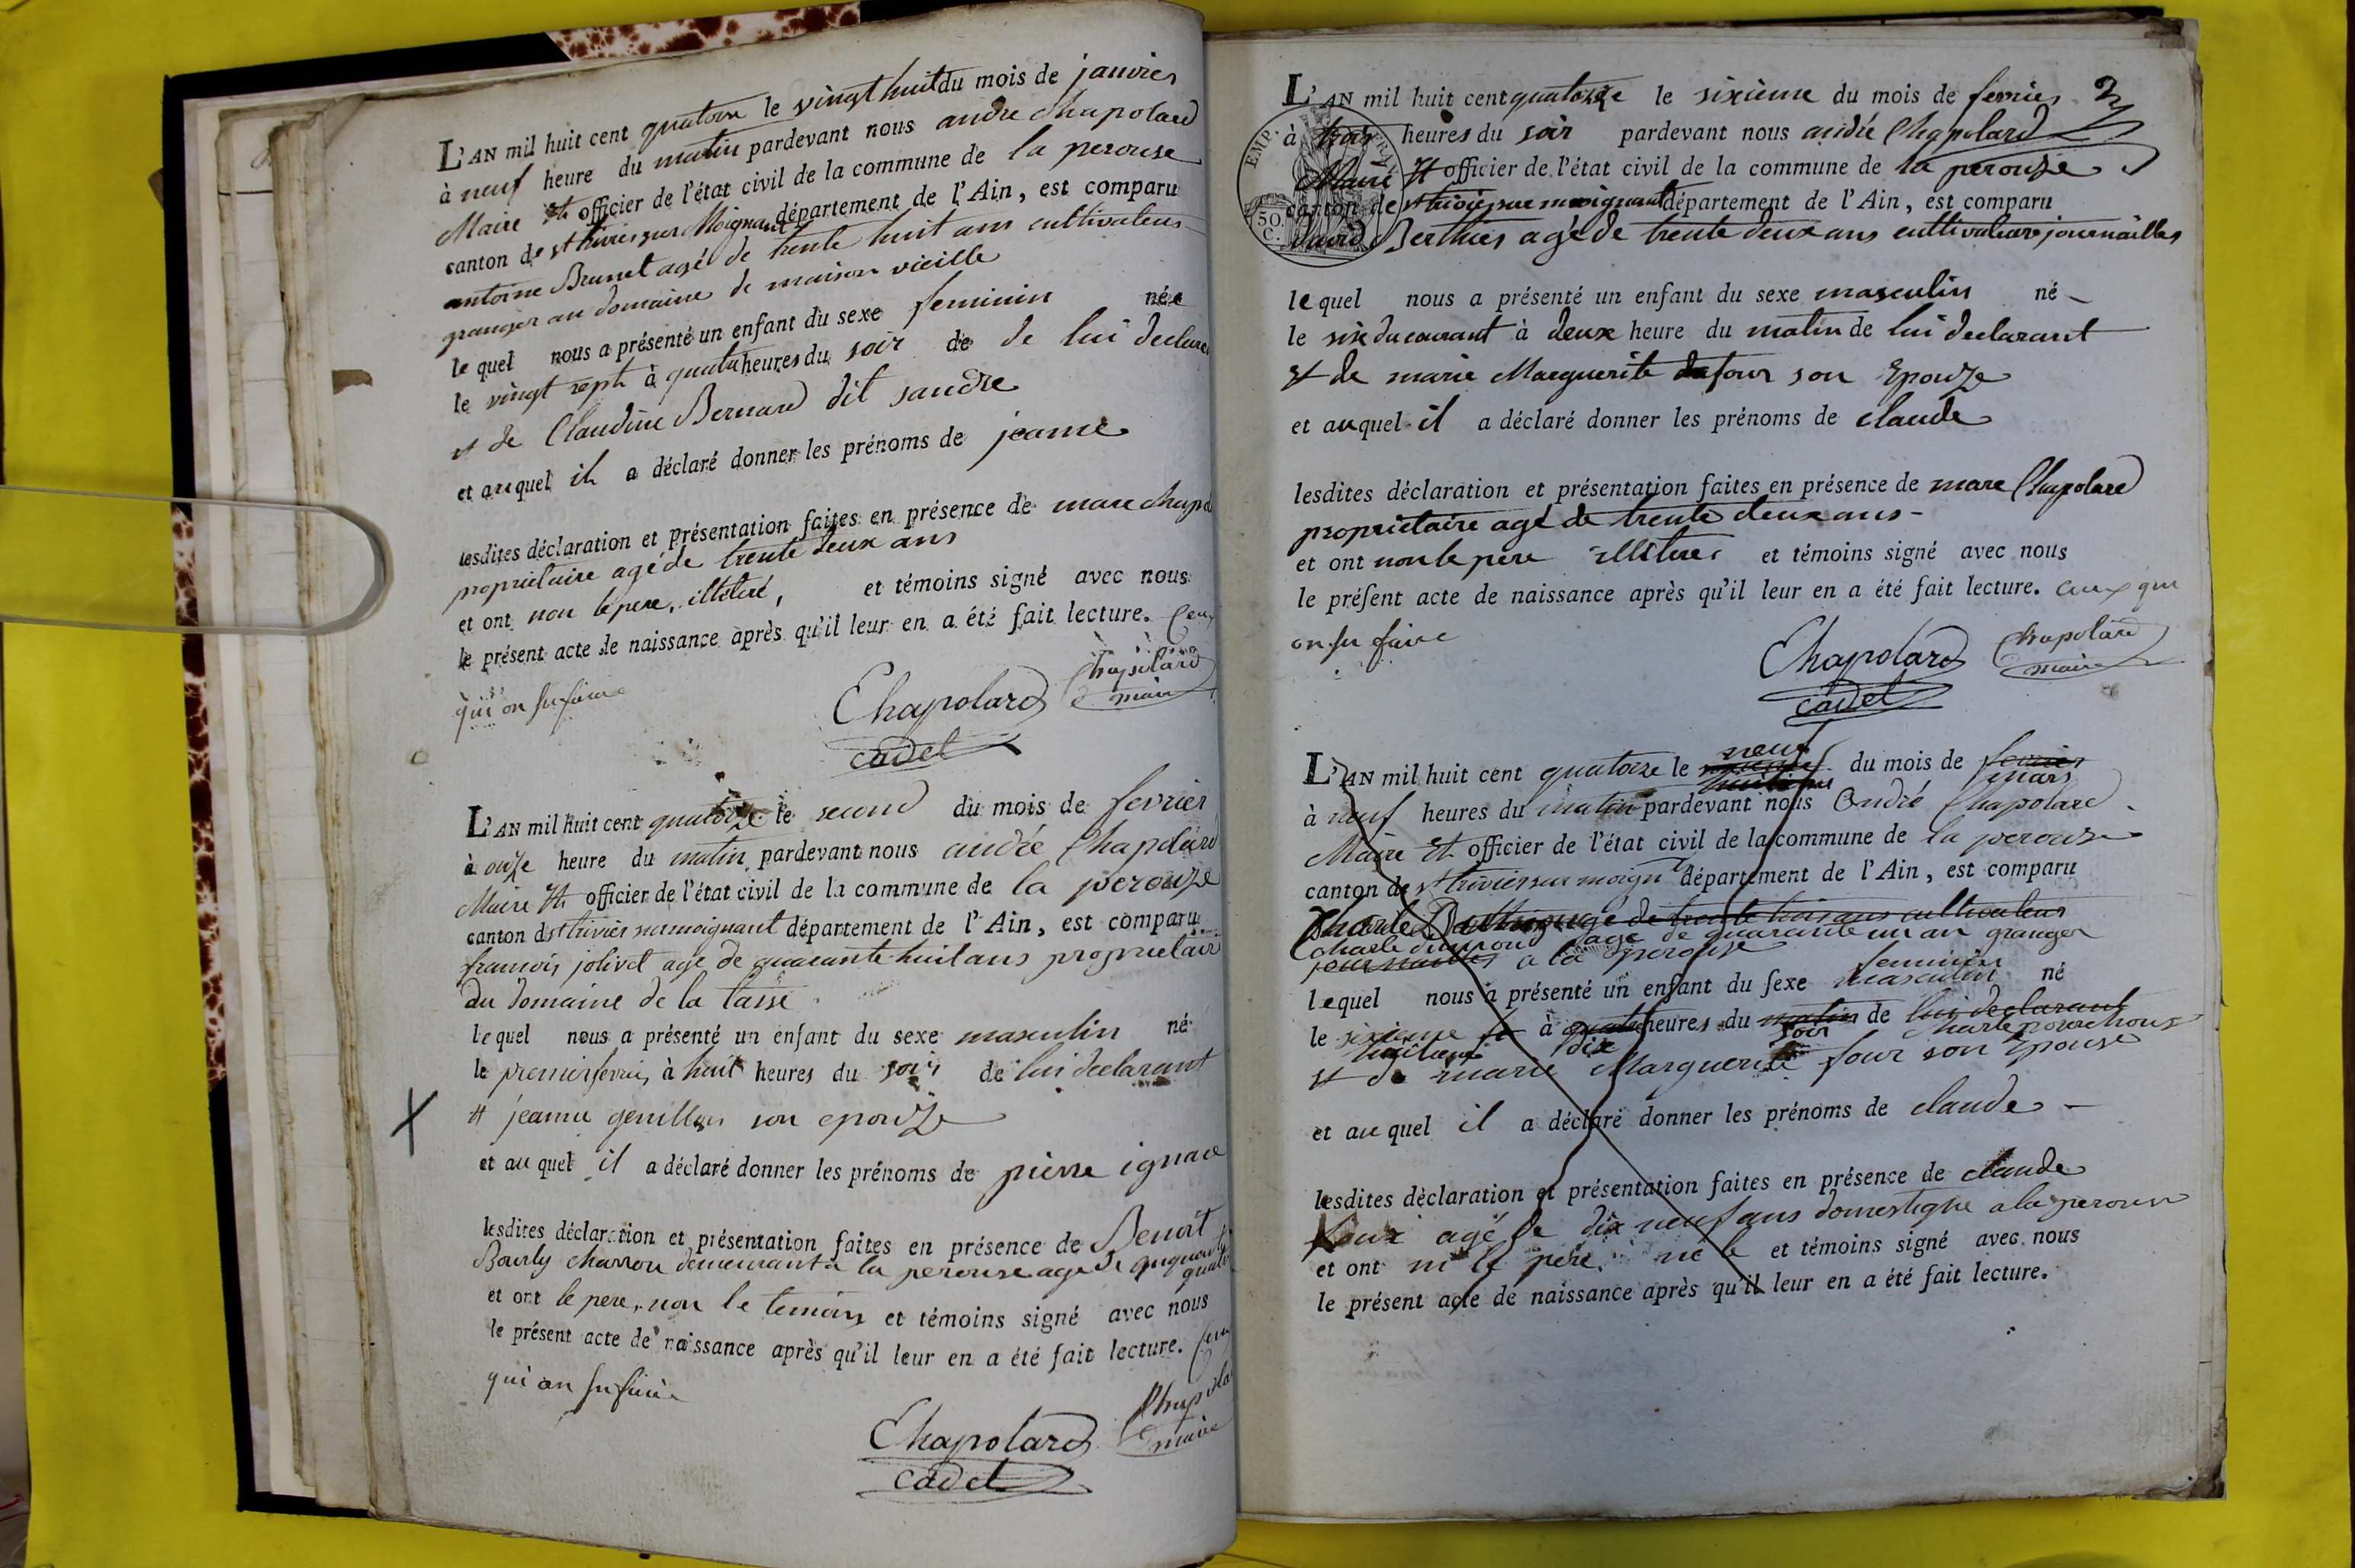 L'AN mil huit cent quatorze le vingt huit du mois de janvier
à neuf heure du matin pardevant nous andre chapolard
Maire et officier de l'état civil de la commune de la perouse
canton de st trivier sur Moignand département de l'Ain, est comparu
antoine Brunet agé de trente huit ans cultivateur
granger au domaine de maison vieille
le quel nous a présenté un enfant du sexe feminin née
le vingt sept à quatre heures du soir de de lui declare
et de Claudine Bernard dit sandre
et au quel il a déclaré donner les prénoms de jeanne
lesdites déclaration et présentation faites en présence de marc chapo
proprietaire agé de trente deux ans
et ont non le pere, illiteré, et témoins signé avec nous
le présent acte de naissance après qu'il leur en a été fait lecture. Ceux
qui on su faire
Chapolard Chapolard
cadet maire
L'AN mil huit cent quatorze le second du mois de fevrier
à onze heure du matin pardevant nous andré Chapolard
Maire et officier de l'état civil de la commune de la perouze
canton de st trivier sur moignant département de l'Ain, est comparu
francois jolivet age de quarante huit ans proprietair
du domaine de la tasse
le quel nous a présenté un enfant du sexe masculin né
le premier fevrier à huit heures du soir de lui declarant
et jeanne genillon son epouze
et au quel il a déclaré donner les prénoms de pierre ignace
lesdites déclaration et présentation faites en présence de Benoit
Bourly charron demeurant a la perouse age de cinquante quatre
et ont le pere, non le temoins et témoins signé avec nous
le présent acte de naissance après qu'il leur en a été fait lecture. Ceux
qui on su faire
Chapolard Chapola
cadet maire
L'AN mil huit cent quatorze le sixieme du mois de fevrier
à trois heures du soir pardevant nous andré Chapolard
Maire et officier de l'état civil de la commune de la perouse
canton de st trivier sur moignant département de l'Ain, est comparu
EMP. FRA
50. C.
Berthier agé de trente deux ans cultivateur journaillier
lequel nous a présenté un enfant du sexe masculin né
le six du courant à deux heure du matin de lui declarant
et de marie Marguerite dufour son Epouze
et au quel il a déclaré donner les prénoms de claude
lesdites déclaration et présentation faites en présence de marc Chapolard
proprietaire agé de trente deux ans
et ont non le pere illiteré et témoins signé avec nous
le présent acte de naissance après qu'il leur en a été fait lecture. ceux qui
on su faire
Chapolard Chapolard
cadet maire
L'AN mil huit cent quatorze le neuf du mois de fevrier mars
à neuf heures du matin pardevant nous André Chapolard
Maire et officier de l'état civil de la commune de la perouse
canton de st trivier sur moignt département de l'Ain, est comparu
agé de trente trois ans cultivateur
Charle age de quarante un an granger
journaillier a la perouse
feminin
lequel nous a présenté un enfant du sexe masculin né
le sixieme à quatre heures du matin de lui declarant
huitieme dix soir charle
et de marie Marguerite four son epouse
et au quel il a déclaré donner les prénoms de claude
lesdites déclaration et présentation faites en présence de claude
agé de dix neuf ans domestique a la perouse
et ont ni le pere ni le et témoins signé avec nous
le présent acte de naissance après qu'il leur en a été fait lecture.